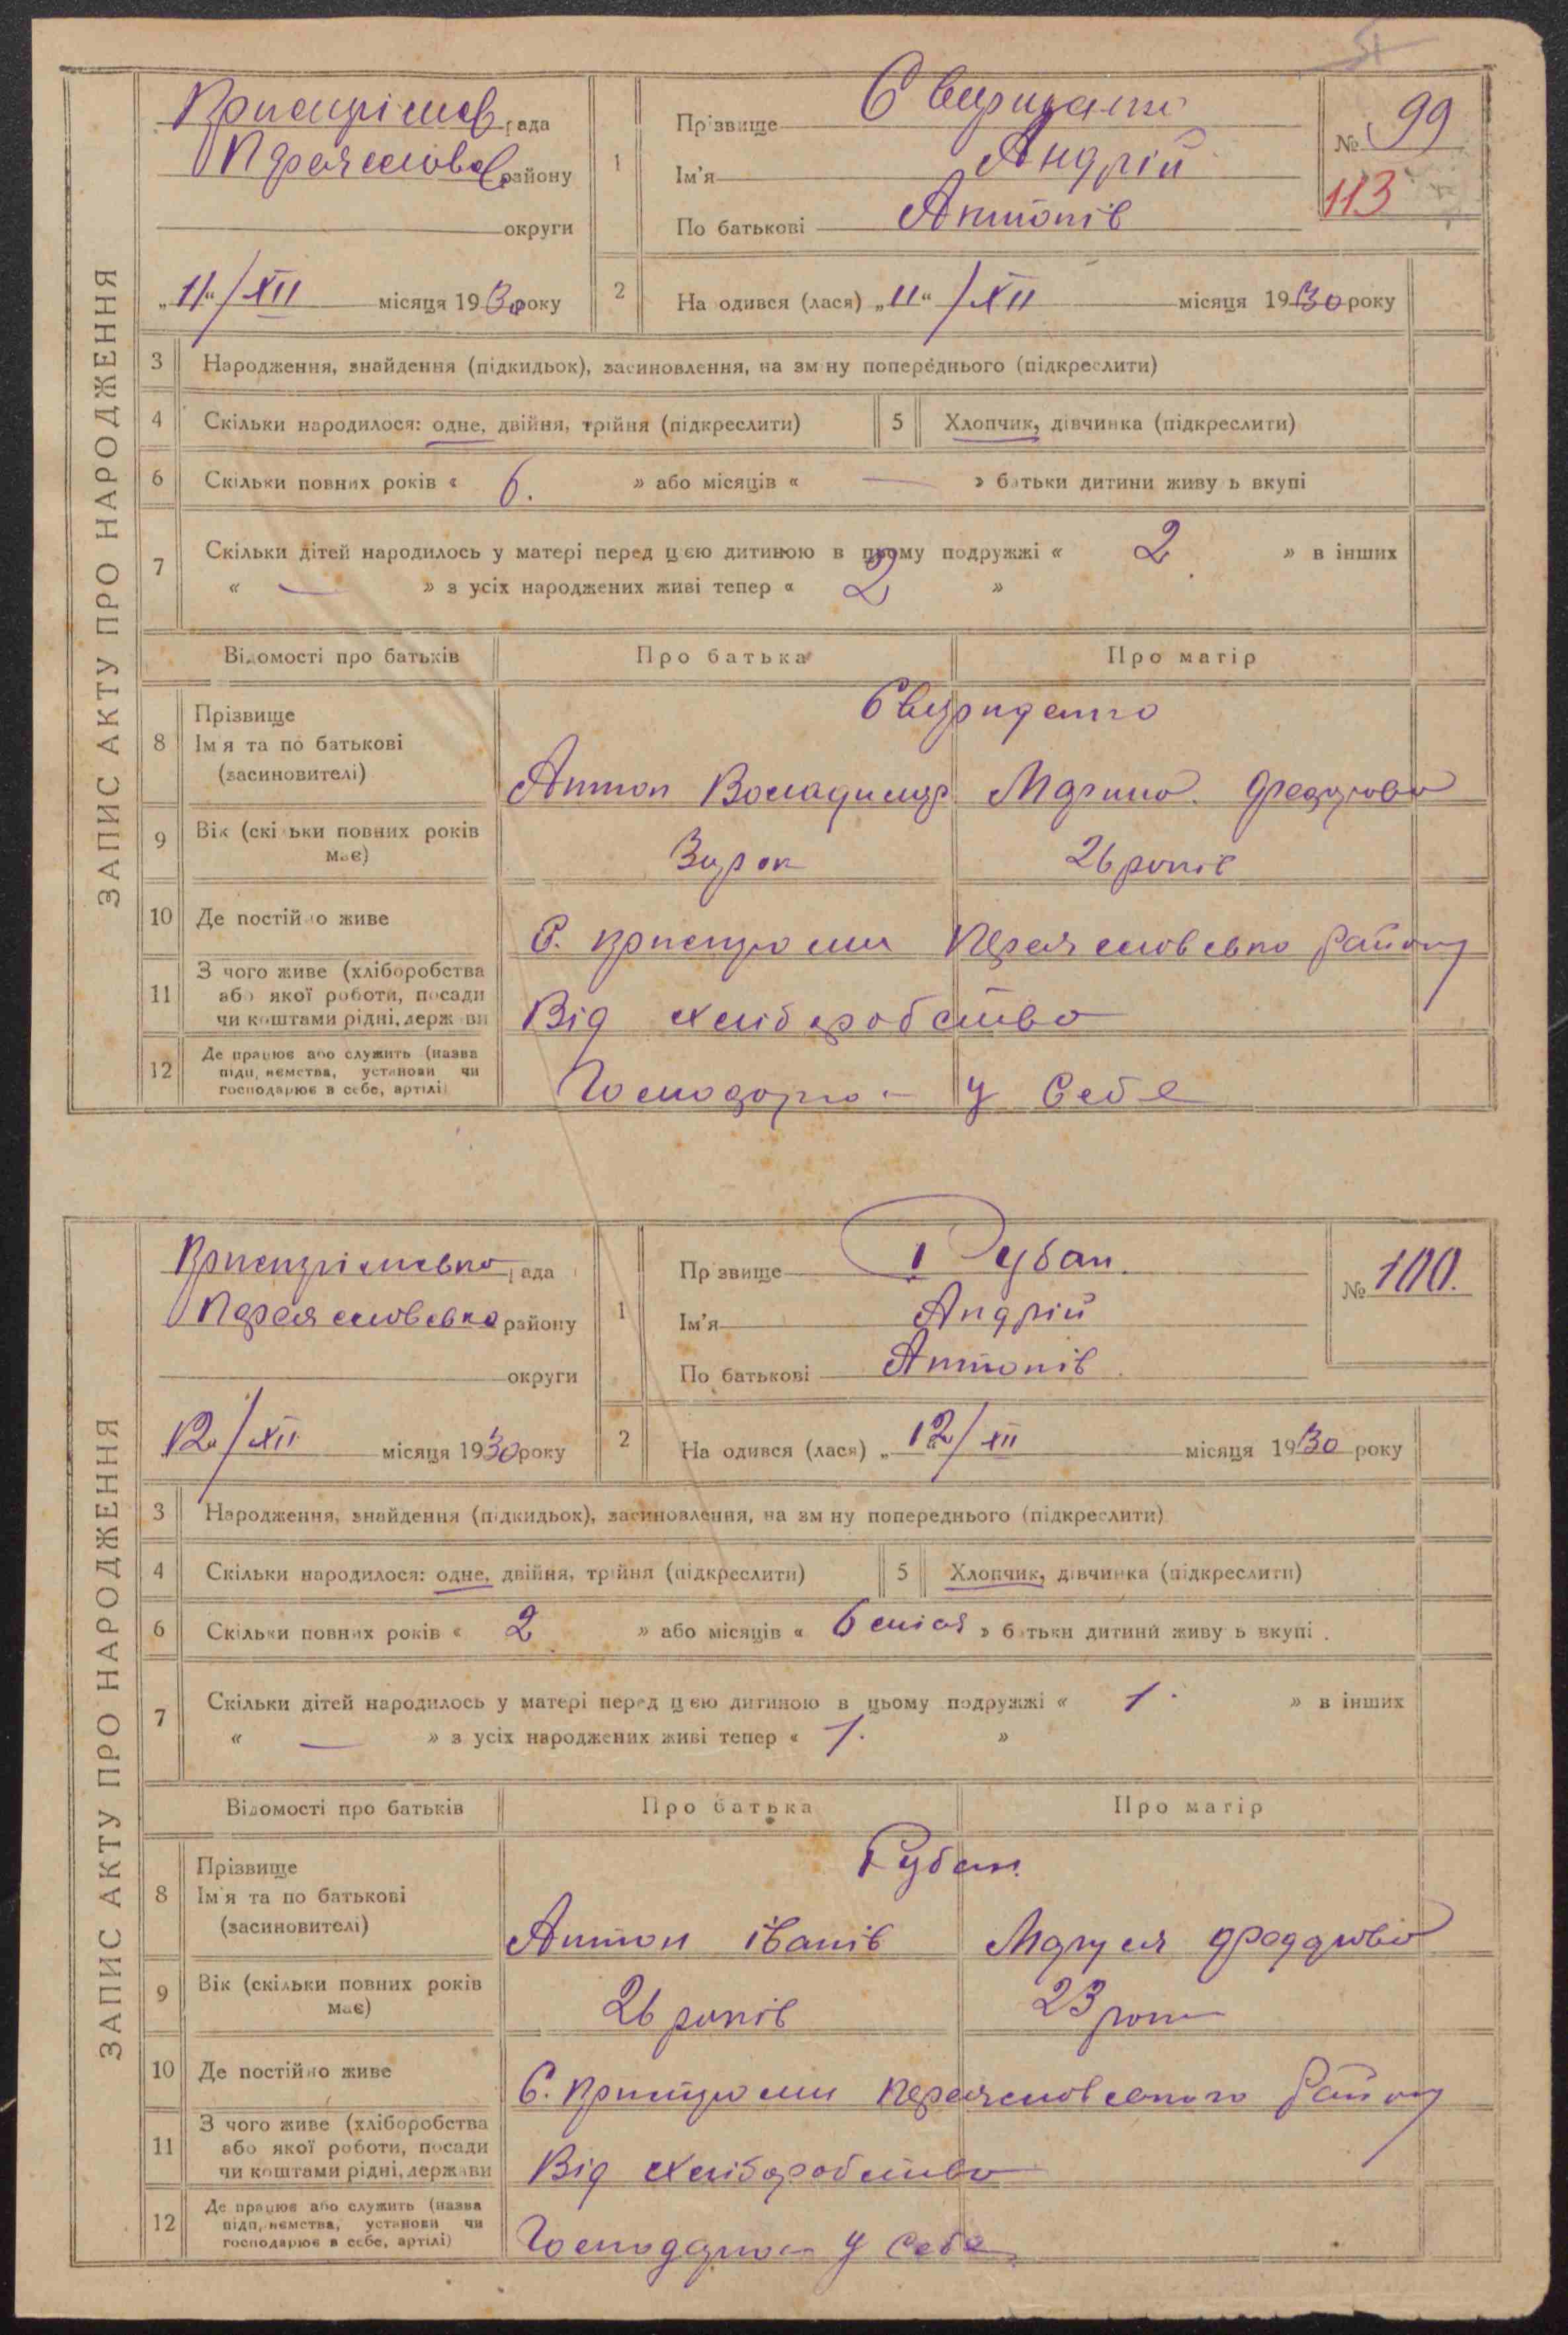 ЗАПИС АКТУ ПРО НАРОДЖЕННЯ
рада
району
округи
„11“/XII місяця 1930 року
1
Прізвище
Ім'я Андрій
По батькові Антонів
№ 99
113
2 На одився (лася) „11“/XII місяця 1930 року
3 Народження, знайдення (підкидьок), засиновлення, на зм ну попереднього (підкреслити)
4 Скільки народилося: одне, двійня, трійня (підкреслити)
5 Хлопчик, дівчинка (підкреслити)
6 Скільки повних років « 6. » або місяців « — » батьки дитини живу ь вкупі
7 Скільки дітей народилось у матері перед цією дитиною в цьому подружжі « 2 » в інших
« — » з усіх народжених живі тепер « 2 »
Відомості про батьків Про батька Про матір
8 Прізвище
Ім я та по батькові
(засиновителі)
Антон Володимир
9 Вік (скі ьки повних років
має)
26 років
10 Де постійно живе
С. району
11 З чого живе (хліборобства
або якої роботи, посади
чи коштами рідні, держ ви
Від хліборобства
12 Де працює або служить (назва
підп, ємства, установи чи
господарює в себе, артілі)
у себе
ЗАПИС АКТУ ПРО НАРОДЖЕННЯ
рада
району
округи
12/XII місяця 1930 року
1
Пр звище Рубан
Ім'я Андрій
По батькові Антонів
№ 100.
2 На одився (лася) „12“/XII місяця 1930 року
3 Народження, знайдення (підкидьок), засиновлення, на зм ну попереднього (підкреслити)
4 Скільки народилося: одне, двійня, трійня (підкреслити)
5 Хлопчик, дівчинка (підкреслити)
6 Скільки повних років « 2 » або місяців « 6 міся » батьки дитини живу ь вкупі
7 Скільки дітей народилось у матері перед цією дитиною в цьому подружжі « 1. » в інших
« — » з усіх народжених живі тепер « 1. »
Відомості про батьків Про батька Про матір
8 Прізвище
Ім'я та по батькові
(засиновителі)
Рубан
Антон Іванів Маруся
9 Вік (скільки повних років
має)
26 років 23 роки
10 Де постійно живе
С. району
11 З чого живе (хліборобства
або якої роботи, посади
чи коштами рідні, держави
Від хліборобства
12 Де працює або служить (назва
підп, ємства, установи чи
господарює в себе, артілі)
у себе